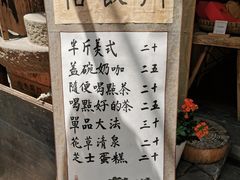 半斤美式 二十
盖碗奶咖 二五
随便喝點茶 二十
喝點好的茶 二五
單品大法 三十
花草清泉 二十
芝士蛋糕 二十